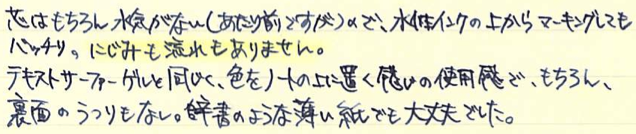 芯はもちろん水気がない(あたり前ですが)ので、水性インクの上からマーキングしても
バッチリ。にじみも流れもありません。
テキストサーファーゲルと同じく、色をノートの上に置く感じの使用感で、もちろん、
裏面のうつりもない。辞書のような薄い紙でも大丈夫でした。